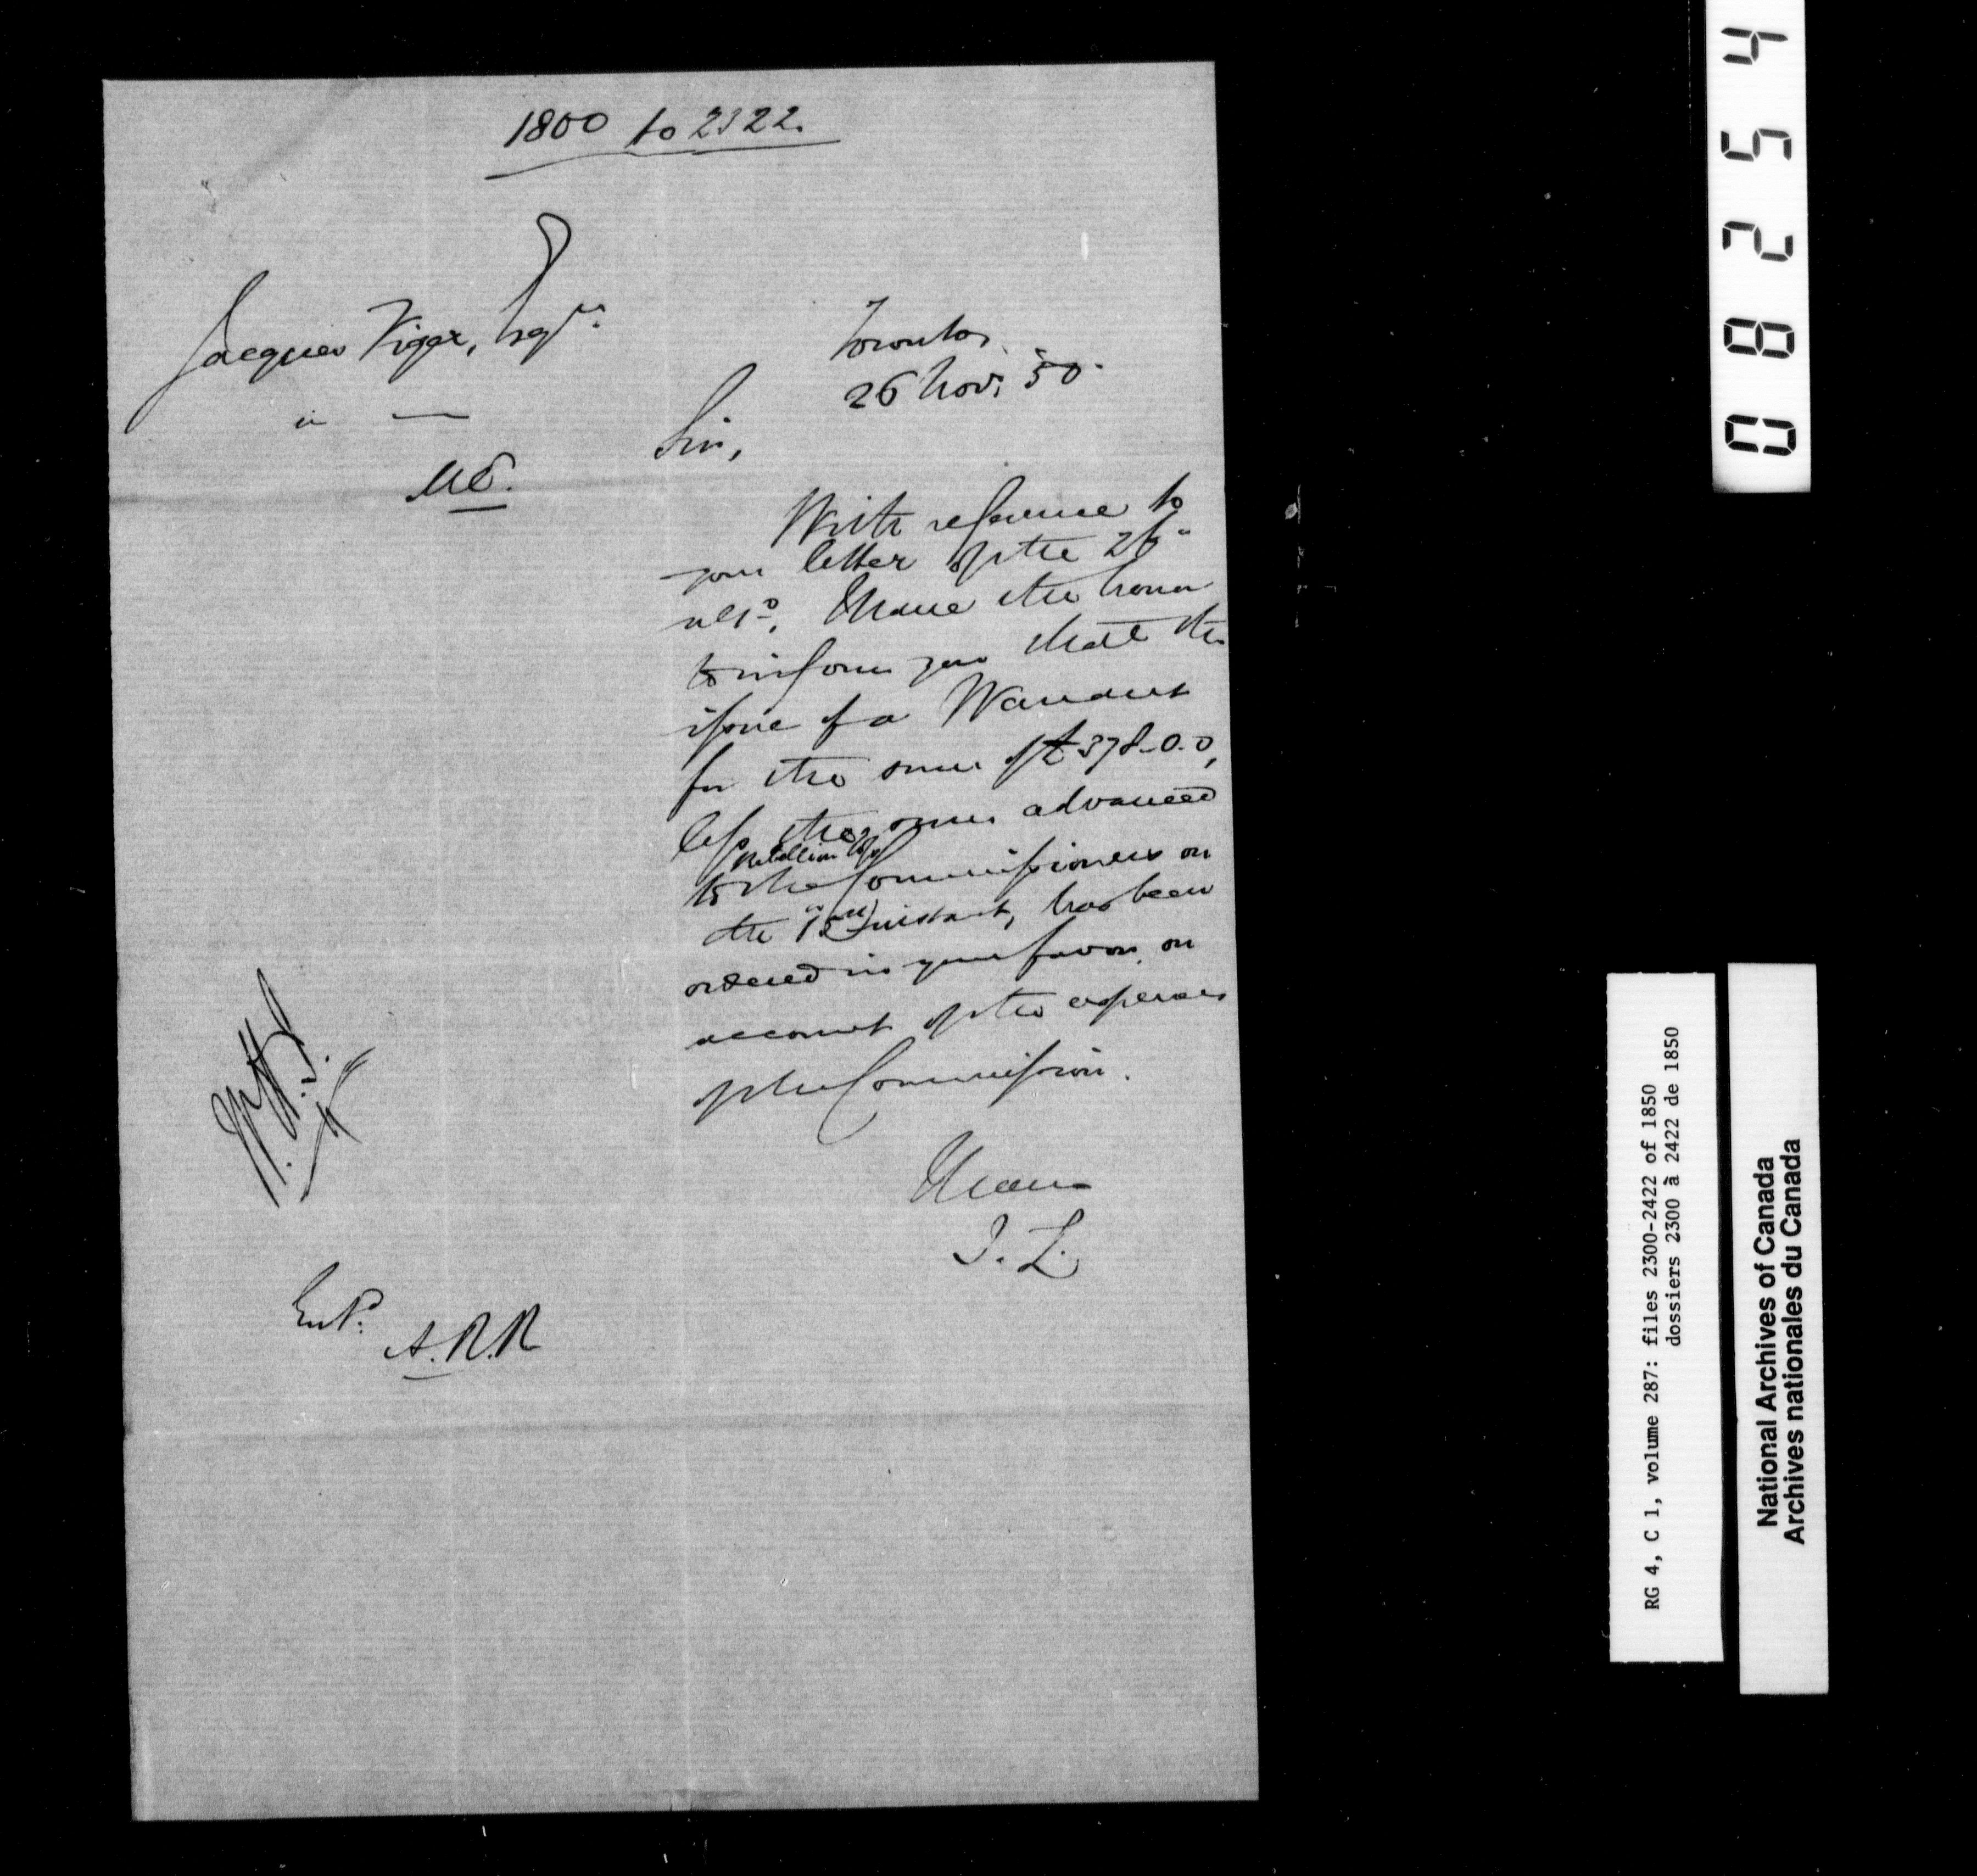 1800 to 2322.
Jacques Viger, Esqre.
Toronto,
26 Nov. 50.
Sir,
With reference to
your letter of the 26
ulto., I have the honor
to inform you that the
issue of a Warrant
for the sum of £378-0-0,
less the sum advanced
Rebellion Losses
to the Commissioners on
the 15th instant, has been
ordered in your favor, on
account of the expenses
of the Commission.
I have
J. L.
Entd.
A.R.R
08254
RG 4, C 1, volume 287: files 2300-2422 of 1850
dossiers 2300 à 2422 de 1850
National Archives of Canada
Archives nationales du Canada